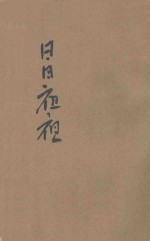 日日夜夜